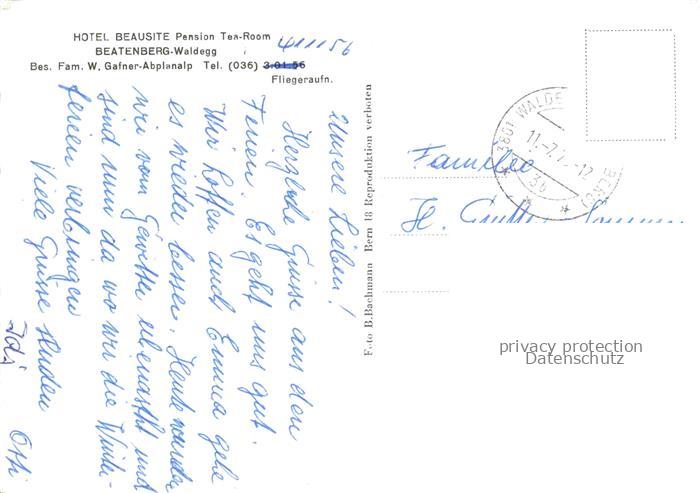 HOTEL BEAUSITE Pension Tea-Room
BEATENBERG-Waldegg
Bes. Fam. W. Gafner-Abplanalp Tel. (036) 3.01.56
411156
Fliegeraufn.
Unsere Lieben!
Herzliche Grüsse aus den
Ferien. Es geht uns gut.
Wir hoffen auch Emma gehe
es wieder besser. Heute wurden
wir vom Gewitter überrascht und
sind nun da wo wir die Winter-
ferien verbringen
Viele Grüsse senden
Otti
Foto B. Bachmann Bern 18 Reproduktion verboten
3801 WALDE
11.-7.7 -12
(BERN)
Familie
H.
privacy protection
Datenschutz